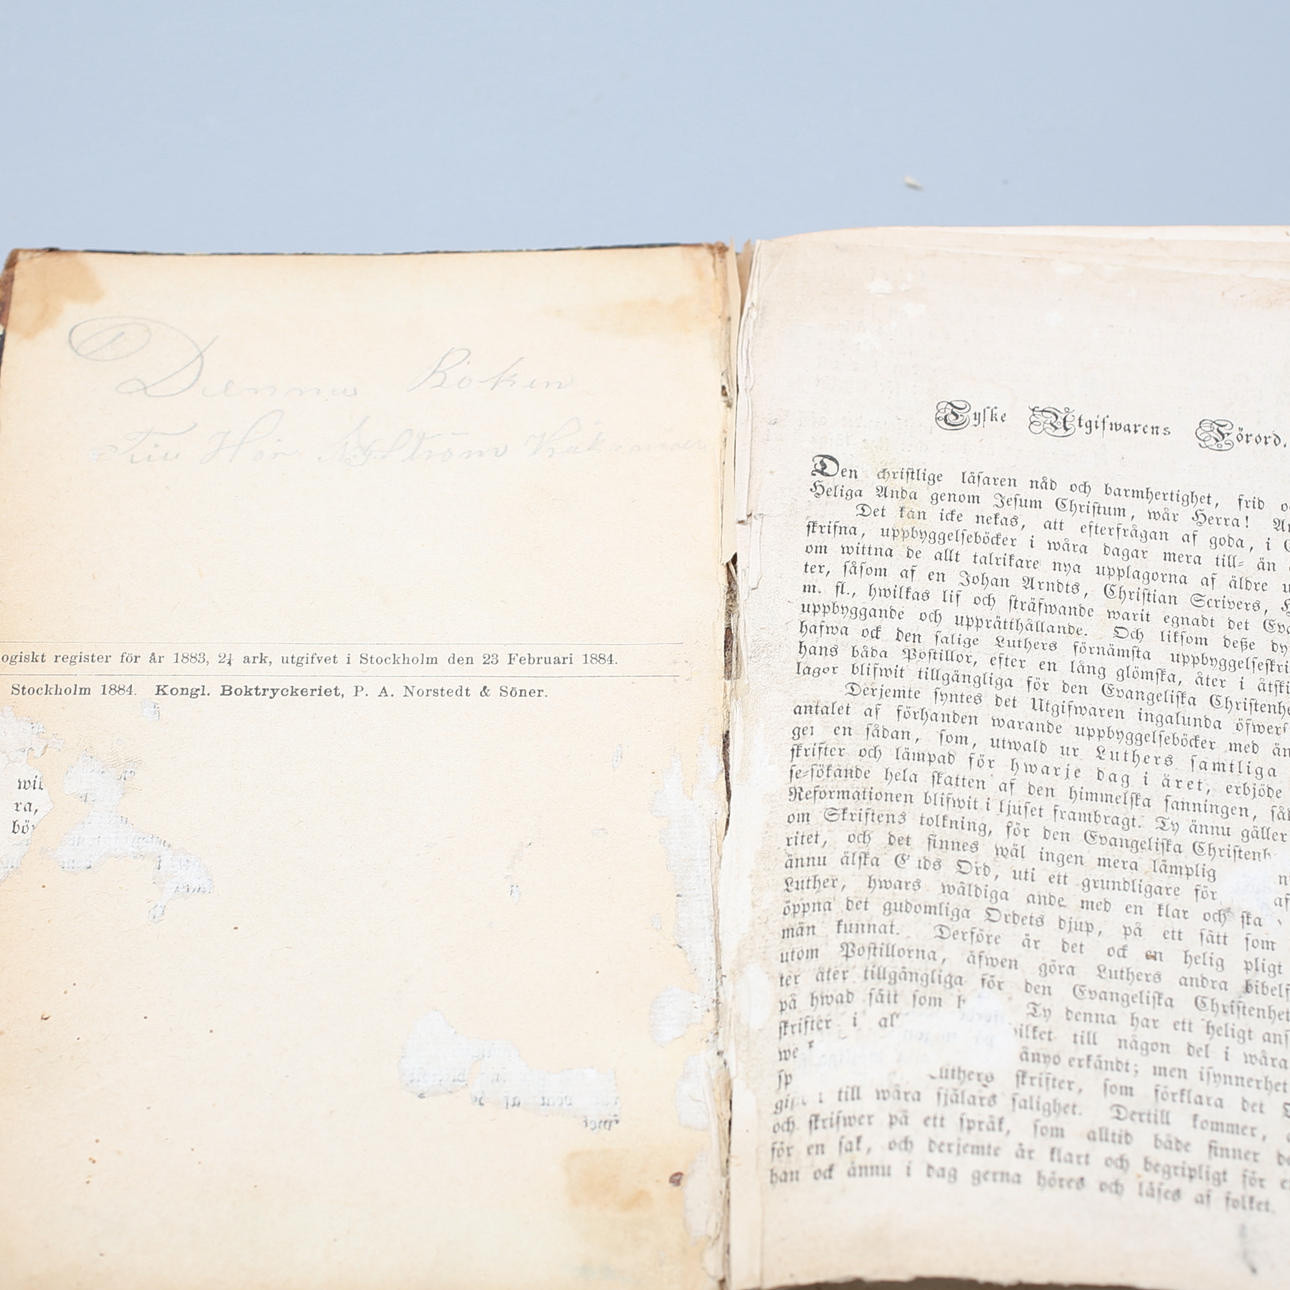 Denna Boken
Till Hör Nyström
ogiskt register för år 1883, 2¼ ark, utgifvet i Stockholm den 23 Februari 1884.
Stockholm 1884. Kongl. Boktryckeriet, P. A. Norstedt & Söner.
ra,
Tyske Utgifwarens Förord.
Den christlige läsaren nåd och barmhertighet, frid
Heliga Anda genom Jesum Christum, wår Herra!
Det kan icke nekas, att efterfrågan af goda, i
skrifna, uppbyggelseböcker i wåra dagar mera till- än
om wittna de allt talrikare nya upplagorna af äldre
ter, såsom af en Johan Arndts, Christian Scrivers,
m. fl., hwilkas lif och sträfwande warit egnadt det
uppbyggande och upprätthållande. Och liksom deße
hafwa ock den salige Luthers förnämsta uppbyggelseskri
hans båda Postillor, efter en lång glömska, åter i
lagor blifwit tillgängliga för den Evangeliska Christenhe
Derjemte syntes det Utgifwaren ingalunda
antalet af förhanden warande uppbyggelseböcker med
en sådan, som, utwald ur Luthers samtliga
skrifter och lämpad för hwarje dag i året, erbjöde
se-sökande hela skatten af den himmelska sanningen,
Reformationen blifwit i ljuset frambragt. Ty ännu gäller
om Skriftens tolkning, för den Evangeliska Christenh
ritet, och det finnes wäl ingen mera lämplig
ännu älska Ord, uti ett grundligare för af
Luther, hwars wäldiga ande med en klar och ska
öppna det gudomliga Ordets djup, på ett sätt som
män kunnat. Derföre är det ock en helig pligt
utom Postillorna, äfwen göra Luthers andra
ter åter tillgängliga för den Evangeliska Christenhet
på hwad sätt som Ty denna har ett heligt
skrifter i till någon del i wåra
we ånyo erkändt; men isynnerhet
sp skrifter, som förklara det
till wåra själars salighet. Dertill kommer,
och skrifwer på ett språk, som alltid både finner
för en sak, och derjemte är klart och begripligt för
han ock ännu i dag gerna höres och läses af folket.